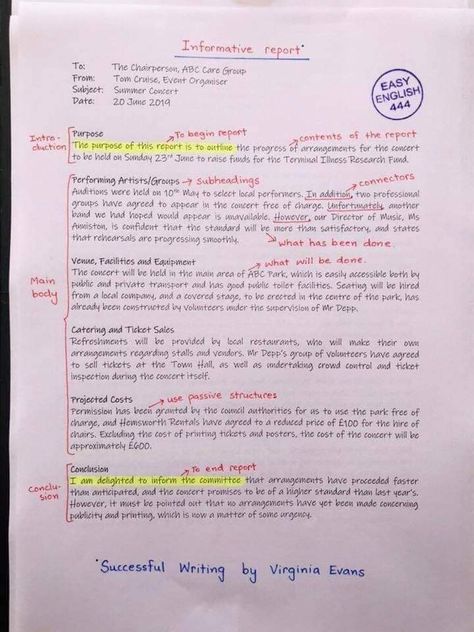 Informative report*
To: The Chairperson, ABC Care Group
From: Tom Cruise, Event Organiser
Subject: Summer Concert
Date: 20 June 2019
EASY
ENGLISH
444
Intro-
duction
Purpose
To begin report
contents of the report
The purpose of this report is to outline the progress of arrangements for the concert
to be held on Sunday 23rd June to raise funds for the Terminal Illness Research Fund.
Main
body
Performing Artists/Groups
subheadings
connectors
Auditions were held on 10th May to select local performers. In addition, two professional
groups have agreed to appear in the concert free of charge. Unfortunately, another
band we had hoped would appear is unavailable. However, our Director of Music, Ms
Anniston, is confident that the standard will be more than satisfactory, and states
that rehearsals are progressing smoothly.
what has been done.
Venue, Facilities and Equipment
what will be done.
The concert will be held in the main area of ABC Park, which is easily accessible both by
public and private transport and has good public toilet facilities. Seating will be hired
from a local company, and a covered stage, to be erected in the centre of the park, has
already been constructed by volunteers under the supervision of Mr Depp.
Catering and Ticket Sales
Refreshments will be provided by local restaurants, who will make their own
arrangements regarding stalls and vendors. Mr Depp's group of volunteers have agreed
to sell tickets at the Town Hall, as well as undertaking crowd control and ticket
inspection during the concert itself.
Projected Costs
use passive structures
Permission has been granted by the council authorities for us to use the park free of
charge, and Hemsworth Rentals have agreed to a reduced price of £100 for the hire of
chairs. Excluding the cost of printing tickets and posters, the cost of the concert will be
approximately £600.
Conclu-
sion
Conclusion
To end report
I am delighted to inform the committee that arrangements have proceeded faster
than anticipated, and the concert promises to be of a higher standard than last year's.
However, it must be pointed out that no arrangements have yet been made concerning
publicity and printing, which is now a matter of some urgency.
*Successful Writing by Virginia Evans